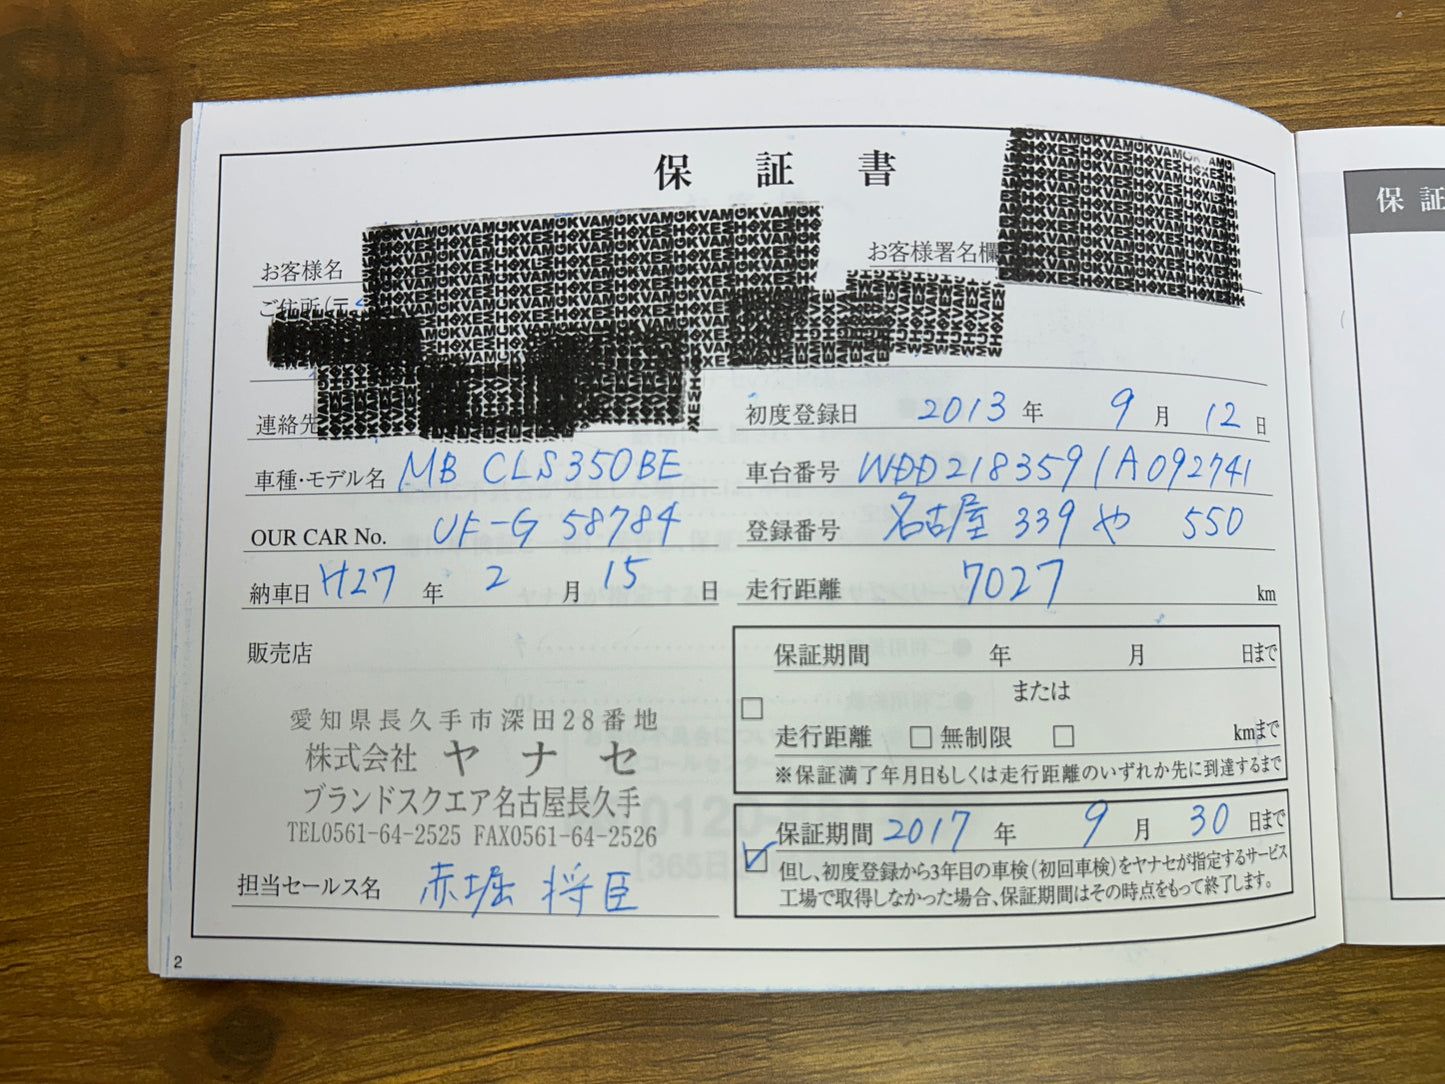 保証書
お客様名
お客様署名欄
ご住所(〒
連絡先
初度登録日 2013年 9月 12日
車種・モデル名 MB CLS350BE
車台番号 WDD2183591A092741
OUR CAR No. UF-G 58784
登録番号 名古屋 339 や 550
納車日 H27年 2月 15日
走行距離 7027 km
販売店
愛知県長久手市深田28番地
株式会社 ヤナセ
ブランドスクエア名古屋長久手
TEL0561-64-2525 FAX0561-64-2526
担当セールス名 赤堀 将臣
保証期間 年 月 日まで
または
走行距離 □無制限 □ kmまで
※保証満了年月日もしくは走行距離のいずれか先に到達するまで
保証期間 2017年 9月 30日まで
但し、初度登録から3年目の車検(初回車検)をヤナセが指定するサービス
工場で取得しなかった場合、保証期間はその時点をもって終了します。
2
保証